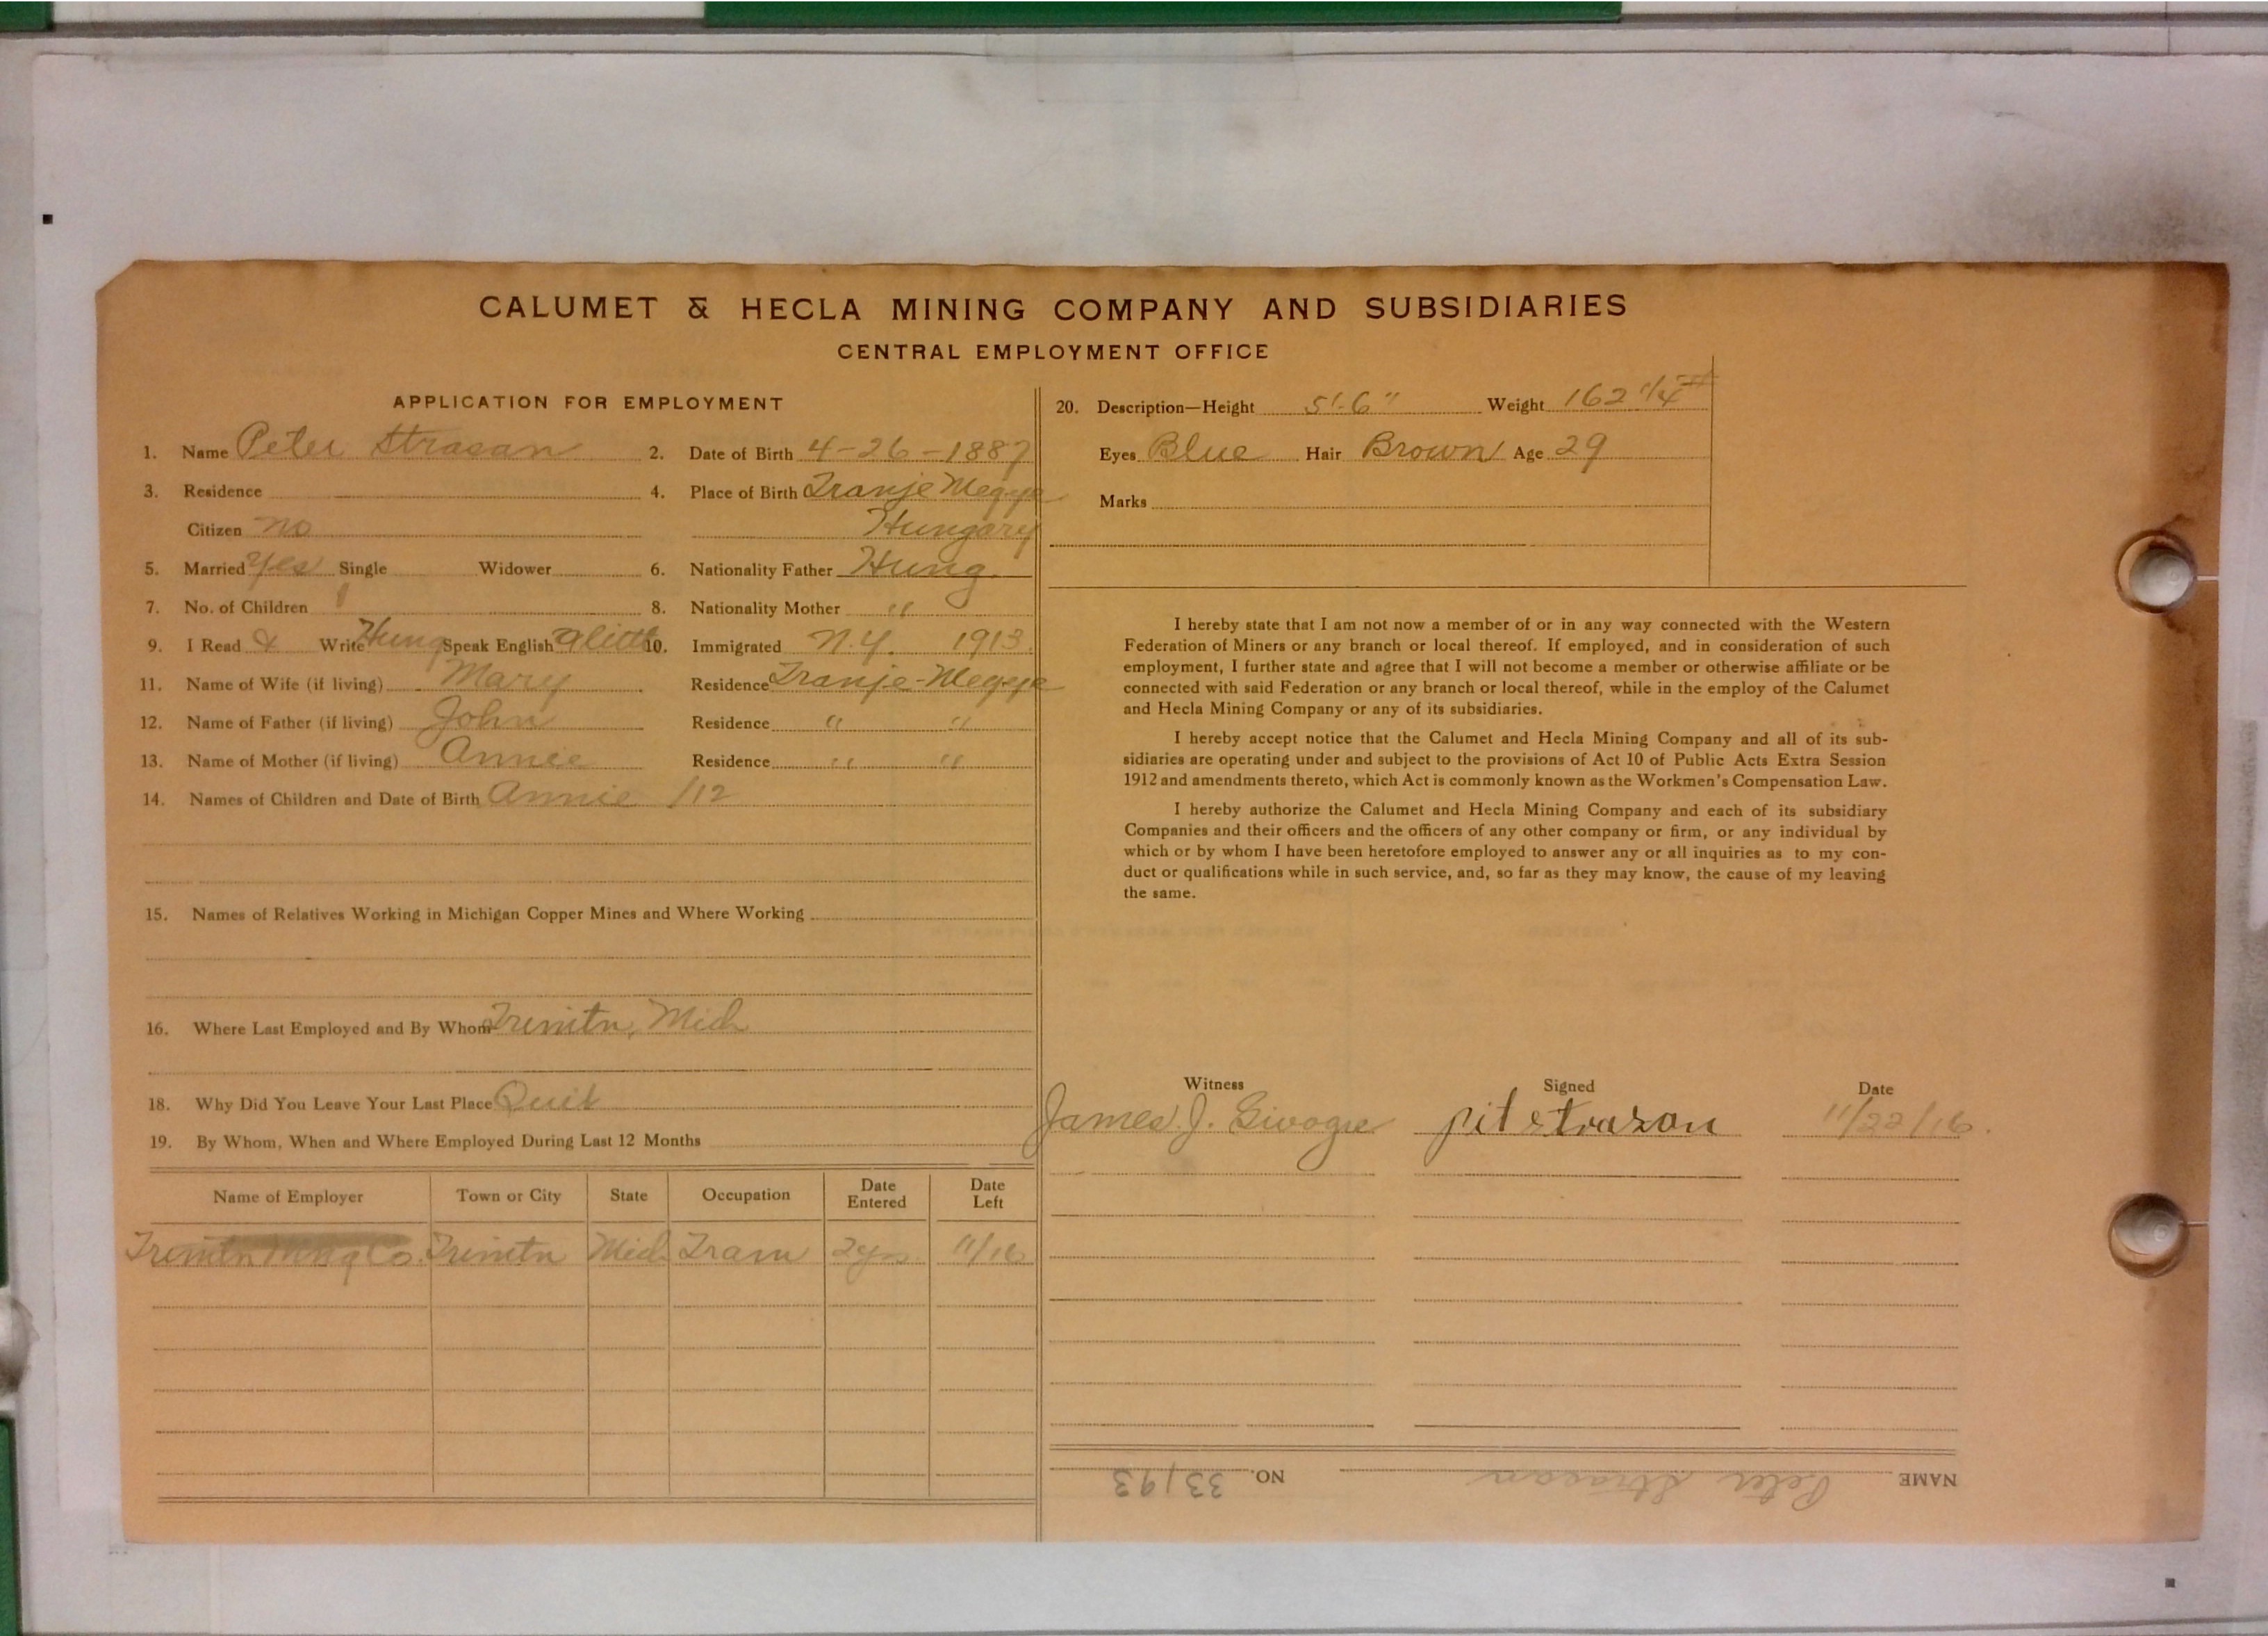 CALUMET & HECLA MINING COMPANY AND SUBSIDIARIES
CENTRAL EMPLOYMENT OFFICE
APPLICATION FOR EMPLOYMENT
1. Name Peter Strasan 2. Date of Birth 4-26-1887
3. Residence 4. Place of Birth Tranje Megye
Citizen no Hungary
5. Married Yes Single Widower 6. Nationality Father Hung.
7. No. of Children 1 8. Nationality Mother "
9. I Read & Write Hung Speak English a little 10. Immigrated N.Y. 1913.
11. Name of Wife (if living) Mary Residence Tranje-Megye
12. Name of Father (if living) John Residence " "
13. Name of Mother (if living) Annie Residence " "
14. Names of Children and Date of Birth Annie /12
15. Names of Relatives Working in Michigan Copper Mines and Where Working
16. Where Last Employed and By Whom Trimtn, Mich
18. Why Did You Leave Your Last Place Quit
19. By Whom, When and Where Employed During Last 12 Months
Name of Employer Town or City State Occupation Date Entered Date Left
Trimtn Mng Co. Trimtn Mich Tram 2 yrs. 11/16
20. Description—Height 5'-6" Weight 162 1/4 #
Eyes Blue Hair Brown Age 29
Marks
I hereby state that I am not now a member of or in any way connected with the Western
Federation of Miners or any branch or local thereof. If employed, and in consideration of such
employment, I further state and agree that I will not become a member or otherwise affiliate or be
connected with said Federation or any branch or local thereof, while in the employ of the Calumet
and Hecla Mining Company or any of its subsidiaries.
I hereby accept notice that the Calumet and Hecla Mining Company and all of its sub-
sidiaries are operating under and subject to the provisions of Act 10 of Public Acts Extra Session
1912 and amendments thereto, which Act is commonly known as the Workmen's Compensation Law.
I hereby authorize the Calumet and Hecla Mining Company and each of its subsidiary
Companies and their officers and the officers of any other company or firm, or any individual by
which or by whom I have been heretofore employed to answer any or all inquiries as to my con-
duct or qualifications while in such service, and, so far as they may know, the cause of my leaving
the same.
Witness Signed Date
James J. pit strazan 11/22/16.
NAME Peter Strasan NO. 33193